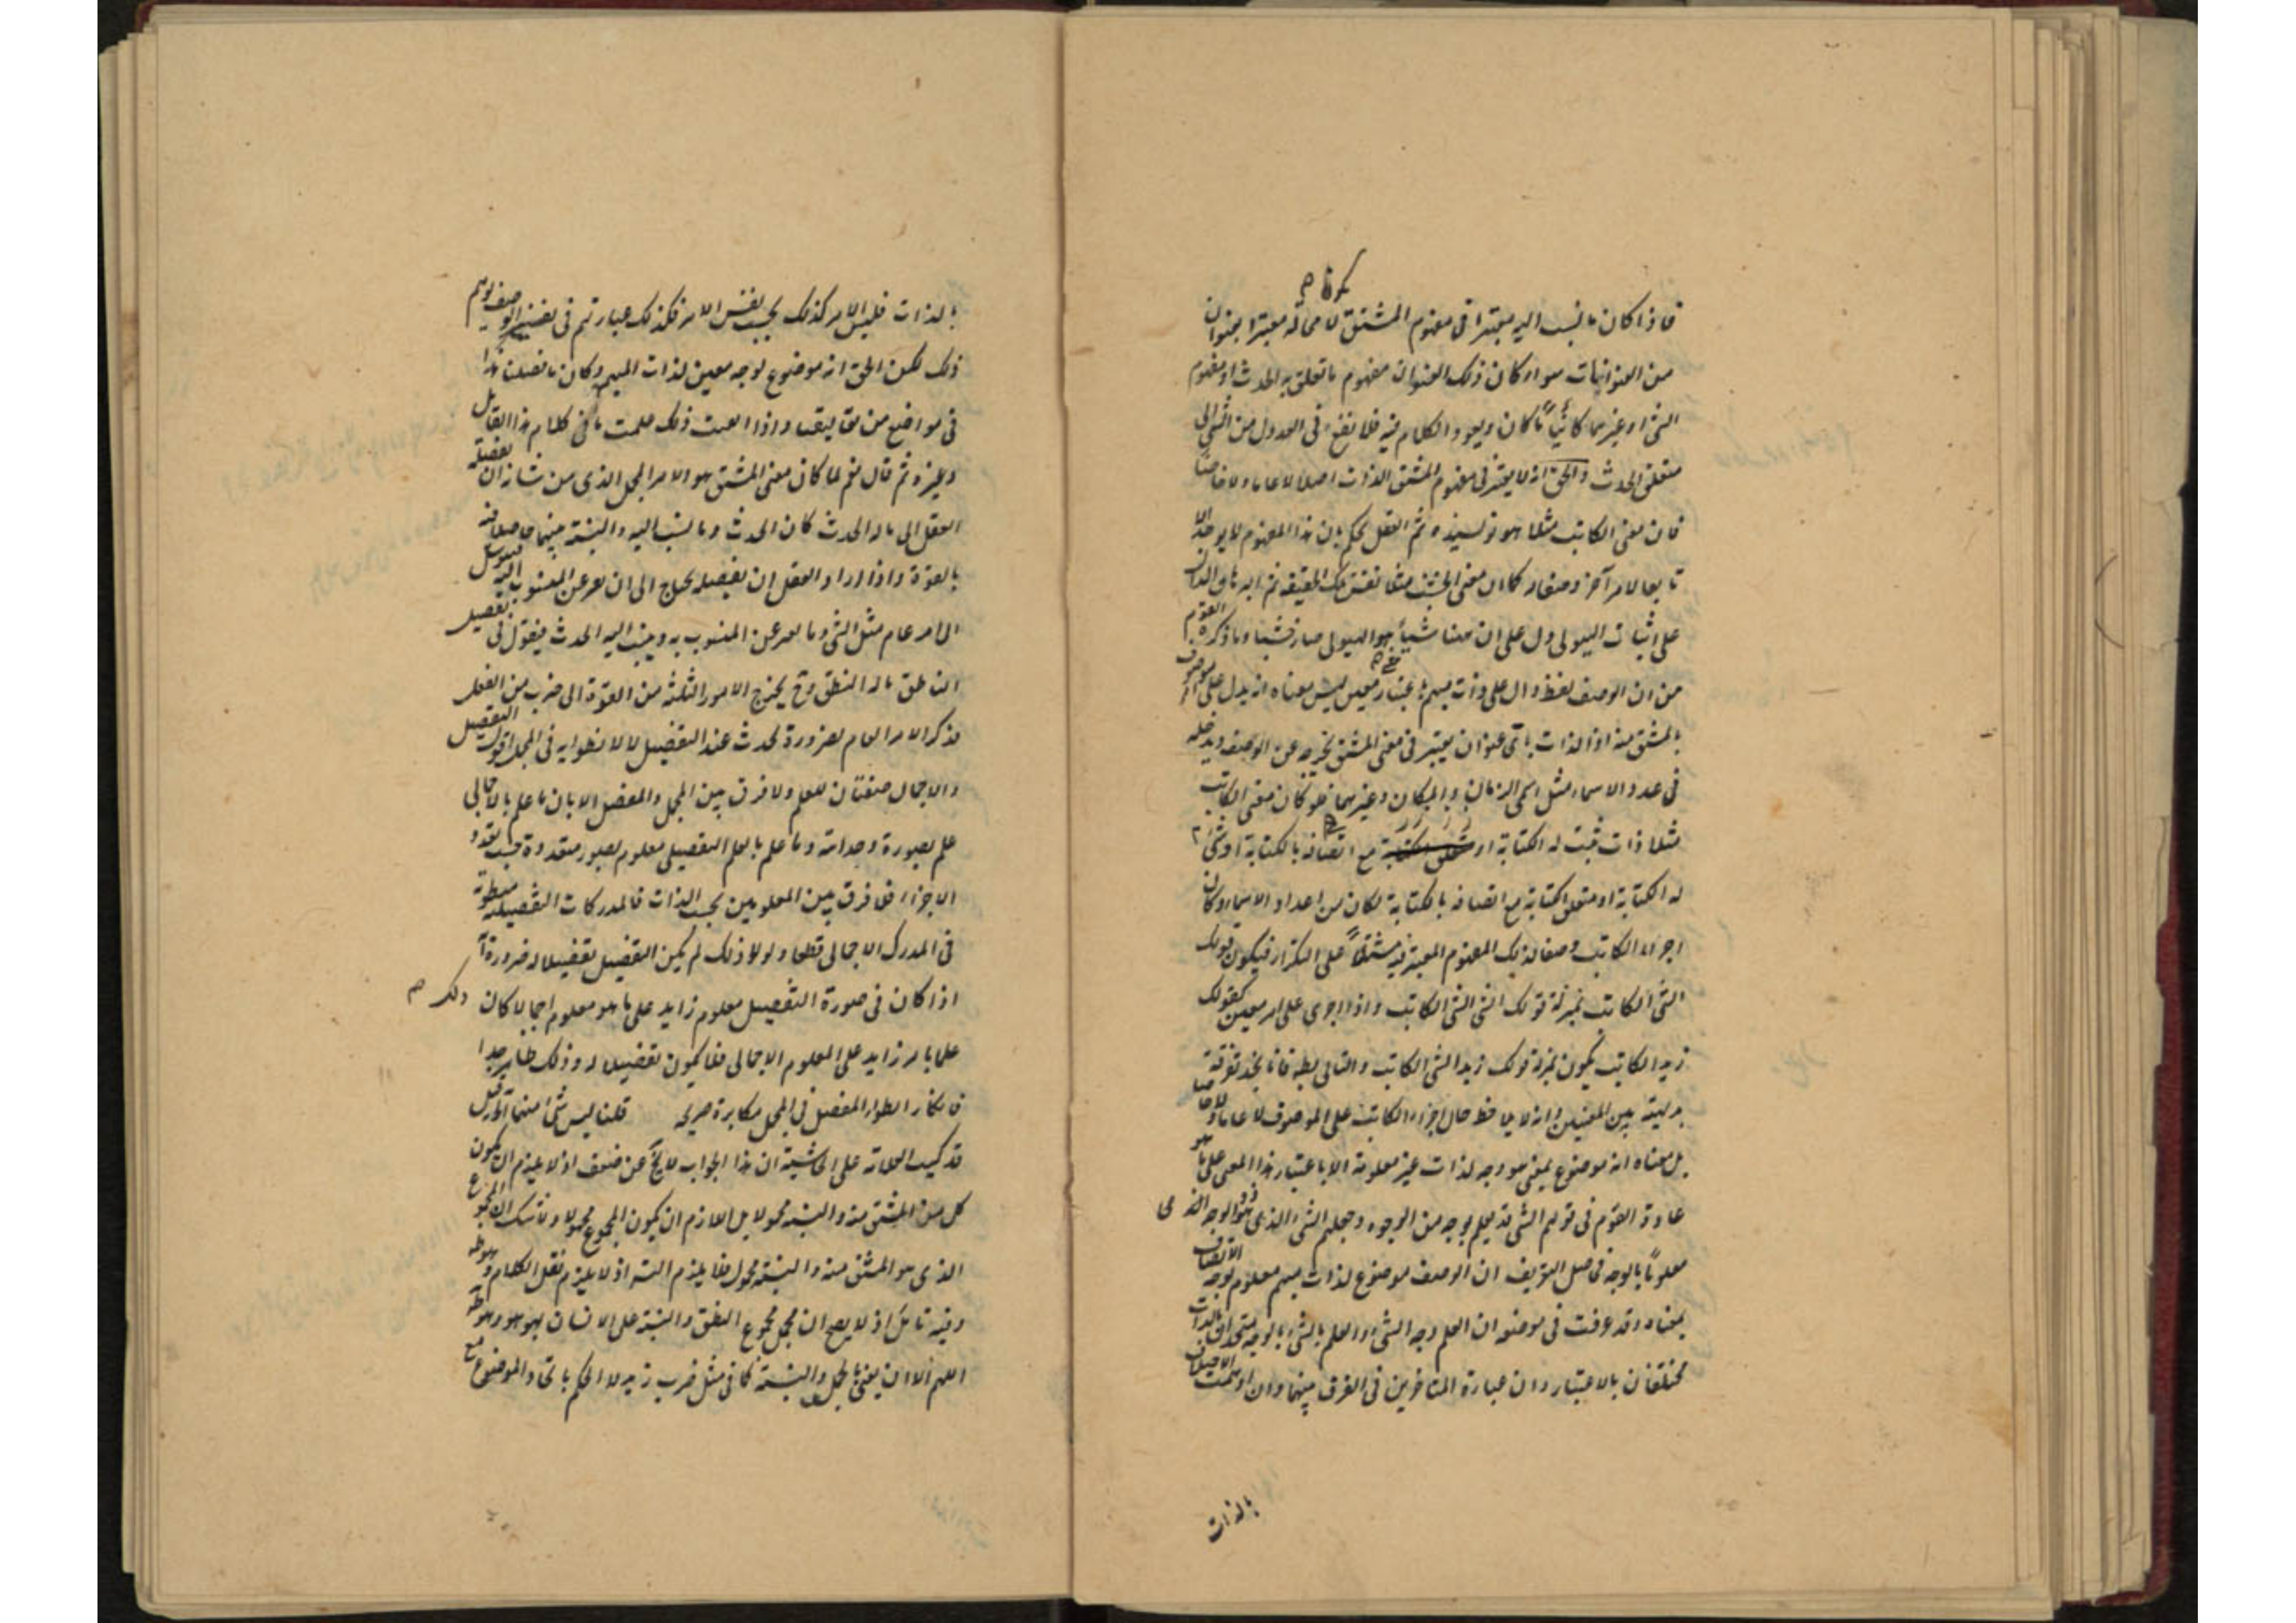 فاذا كان ما نسب اليه معتبرا فى مفهوم المشتق لا محالة معتبرا بعنوان
من العنوانات سواء كان ذلك العنوان مفهوم ما تعلق به الحدث او مفهوم
الشئ او غيرهما كائناً ما كان ويعود الكلام فيه فلا نفع فى العدول من الشئ الى
متعلق الحدث والحق انه لا يعتبر فى مفهوم المشتق الذات اصلا لا عاما ولا خاصا
فان معنى الكاتب مثلا هو نويسنده ثم العقل يحكم بان هذا المفهوم لا يوجد الا
تابعا لامر آخر وصفا له كما ان معنى الجسم مثلا نفس تلك الحقيقة ثم البرهان الدال
على اثبات الهيولى دل على ان هنا شيأ هو الهيولى وما ذكره القوم
من ان الوصف لفظ دال على ذات مبهم باعتبار معين ليس معناه انه يدل على
المشتق منه اذ الذات باى عنوان يعتبر فى معنى المشتق يخرجه عن الوصف ويدخله
فى عدد الاسماء مثل اسمى الزمان والمكان وغيرهما فلو كان معنى الكاتب
مثلا ذات ثبت له الكتابة او مع اتصافه بالكتابة او شئ
له الكتابة او متعلق الكتابة مع اتصافه بالكتابة لكان من اعداد الاسماء وكان
اجراء الكاتب وصفا لذلك المفهوم المعتبر فيه مشتملاً على التكرار فيكون قولك
الشئ الكاتب بمنزلة قولك الشئ الشئ الكاتب واذا اجرى على امر معين كقولك
زيد الكاتب يكون بمنزلة قولك زيد الشئ الكاتب والتالى بط فانا نجد تفرقة
بديهية بين المعنيين وانه لا يلاحظ حال اجراء الكاتب على الموصوف لا عاما ولا خاصا
بل معناه انه موضوع لمعنى هو وجه لذات غير معلومة الا باعتبار هذا المعنى على ما هو
عادة القوم فى قولهم الشئ قد يعلم بوجه من الوجوه وجعلهم الشئ الذى
معلوماً بالوجه فحاصل التعريف ان الوصف موضوع لذات مبهم معلوم بوجه الاتصاف
بمعناه وقد عرفت فى موضعه ان العلم بوجه الشئ والعلم بالشئ بالوجه متحدان بالذات
مختلفان بالاعتبار وان عبارة المتاخرين فى الفرق بينهما وان اوهمت
بالذات
بالذات فليس الامر كذلك بحسب نفس الامر فكذلك عبارتهم فى تفسير الوصف يوهم
ذلك لكن الحق انه موضوع لوجه معين لذات المبهم وكان ما فصلنا هذا
فى مواضع من تعاليقنا واذا اتقنت ذلك علمت ما فى كلام هذا القائل
وغيره ثم قال نعم لما كان معنى المشتق هو الامر المجمل الذى من شانه ان يفصله
العقل الى ما له الحدث كان الحدث وما نسب اليه والنسبة بينهما حاصلة فيه
بالقوة واذا اراد العقل ان يفصله يحتاج الى ان يعبر عن المنسوب اليه
الى امر عام مثل الشئ وما يعبر عن المنسوب به وينسب اليه الحدث فيقول فى تفصيل
الناطق ما له النطق وح يخرج الامور الثلثة من القوة الى ضرب من الفعل
فذكر الامر العام لضرورة تحدث عند التفصيل لا لانطوائه فى المجمل اقول التفصيل
والاجمال صفتان للعلم ولا فرق بين المجمل والمفصل الا بان ما علم بالاجمالى
علم بصورة وحدانية وما علم بالعلم التفصيلى معلوم بصور متعددة حسب تعدد
الاجزاء فلا فرق بين المعلومين بحسب الذات فالمدركات التفصيلية منطوية
فى المدرك الاجمالى قطعا ولولا ذلك لم يكن التفصيل تفصيلا له ضرورة
اذا كان فى صورة التفصيل معلوم زايد على ما هو معلوم اجمالا كان ذلك
علما بامر زايد على المعلوم الاجمالى فلا يكون تفصيلا له وذلك ظاهر جدا
فانكار انطواء المفصل فى المجمل مكابرة صريحة قلنا ليس شئ منهما
قد كتبت العلامة على الحاشية ان هذا الجواب لا يخ عن ضعف اذ لا يلزم ان يكون
كل من المشتق منه والنسبة محمولا بل اللازم ان يكون المجموع محمولا ولا شك ان المجموع
الذى هو المشتق منه والنسبة محمول فلا يلزم النسبة اذ لا يلزم نقل الكلام
وفيه تامل اذ لا يصح ان يحمل مجموع النطق والنسبة على الانسان بهو هو
اللهم الا ان يعنى بالحمل والنسبة كما فى مثل ضرب زيد لا الحكم باتحاد الموضوع مع